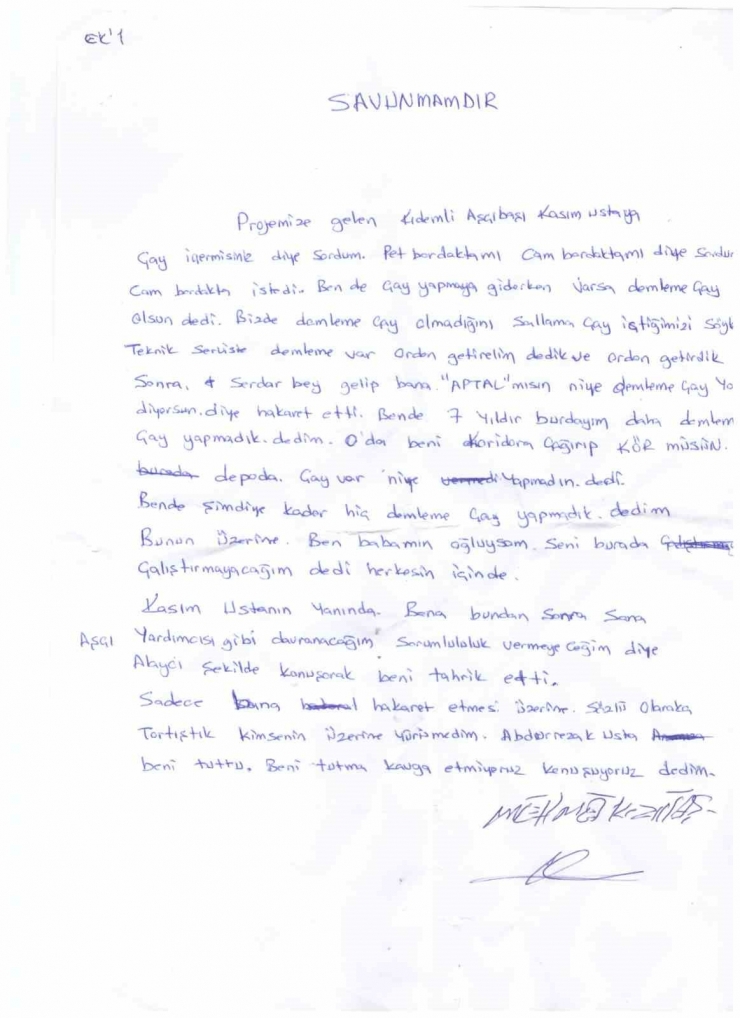 EK'1
SAVUNMAMDIR
Projemize gelen kıdemli Aşçıbaşı Kasım ustaya
Çay içermisiniz diye sordum. Pet bardaktamı Cam bardaktamı diye sordum
Cam bardakta istedi. Ben de Çay yapmaya giderken varsa demleme Çay
Olsun dedi. Bizde demleme Çay olmadığını Sallama Çay içtiğimizi Söyl
Teknik Serviste demleme var Ordan getirelim dedik ve ordan getirdik
Sonra, Serdar bey gelip bana "APTAL"mısın niye demleme Çay Yo
diyorsun. diye hakaret etti. Bende 7 Yıldır burdayım daha demlem
Çay yapmadık. dedim. O'da beni Koridora Çağırıp KÖR MÜSÜN.
burada depoda. Çay var niye vermedi Yapmadın. dedi.
Bende Şimdiye kadar hiç demleme Çay yapmadık. dedim
Bunun Üzerine. Ben babamın oğluysam. Seni burada
Çalıştırmayacağım dedi herkesin içinde.
Kasım Ustanın Yanında. Bana bundan Sonra Sana
Aşçı Yardımcısı gibi davranacağım Sorumlululuk vermeye Ceğim diye
Alaycı Şekilde konuşarak beni tahrik etti.
Sadece bana hakaret etmesi Üzerine. Sözlü Olaraka
Tartıştık kimsenin Üzerine Yürümedim. Abdurrezak Usta
beni tuttu. Beni tutma kavga etmiyoruz konuşuyoruz dedim.